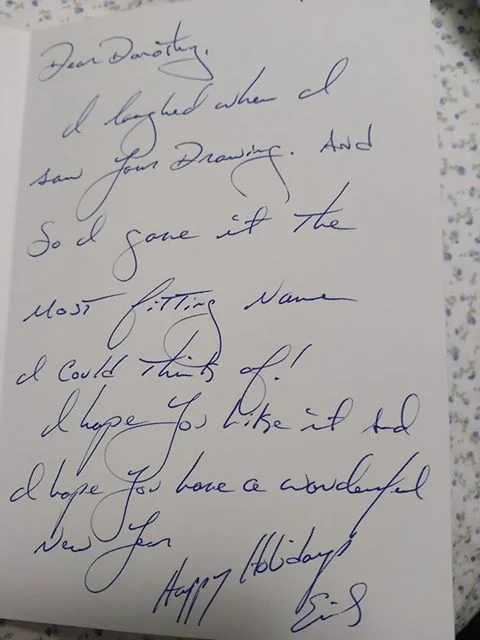 Dear Dorothy,
I laughed when I
saw your Drawing. And
So I gave it the
Most fitting Name
I could think of!
I hope you like it and
I hope you have a wonderful
New Year
Happy Holidays